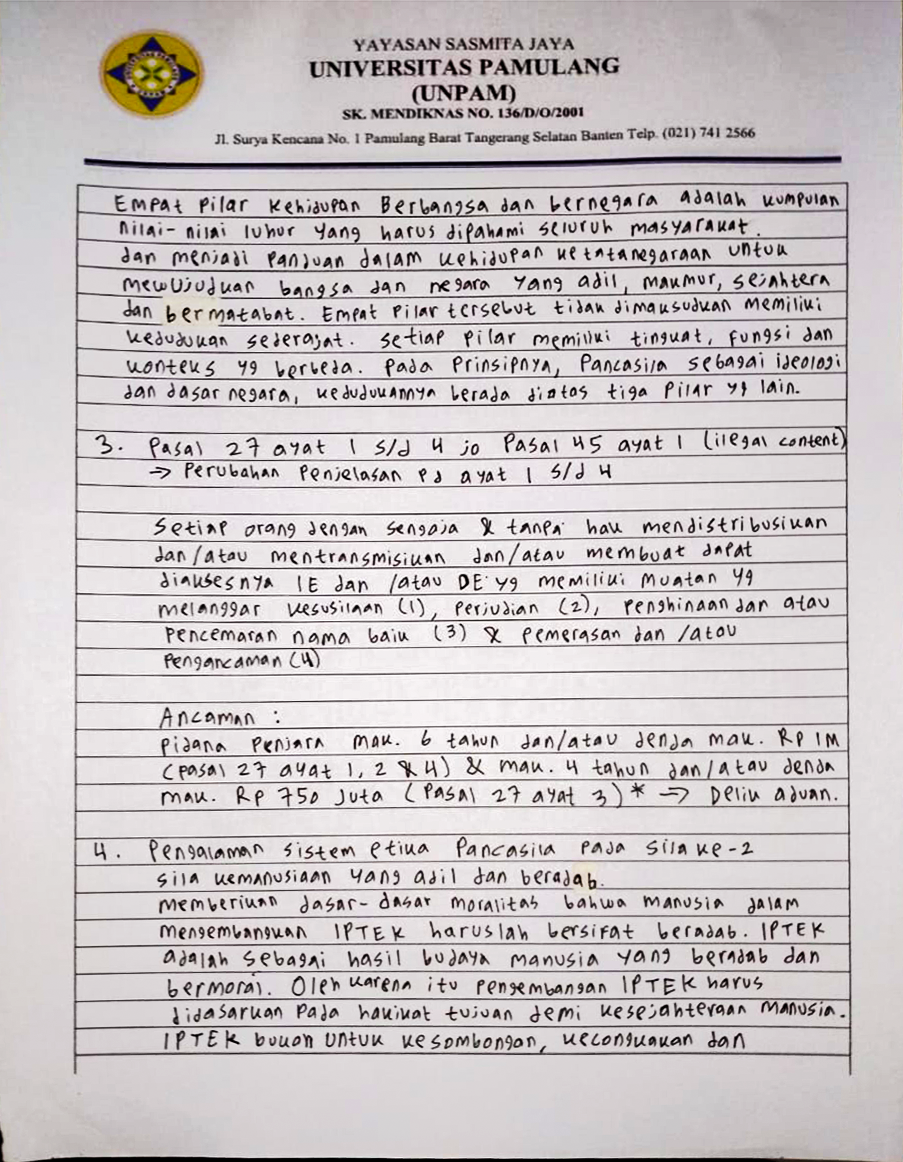 YAYASAN SASMITA JAYA
UNIVERSITAS PAMULANG
(UNPAM)
SK. MENDIKNAS NO. 136/D/O/2001
Jl. Surya Kencana No. 1 Pamulang Barat Tangerang Selatan Banten Telp. (021) 741 2566
Empat pilar Kehidupan Berbangsa dan bernegara adalah kumpulan
nilai-nilai luhur yang harus dipahami seluruh masyarakat.
dan menjadi panduan dalam kehidupan ketatanegaraan untuk
mewujudkan bangsa dan negara yang adil, makmur, sejahtera
dan bermatabat. Empat pilar tersebut tidak dimaksudkan memiliki
kedudukan sederajat. Setiap pilar memiliki tingkat, fungsi dan
konteks yg berbeda. Pada Prinsipnya, Pancasila sebagai ideologi
dan dasar negara, kedudukannya berada diatas tiga pilar yg lain.
3. Pasal 27 ayat 1 s/d 4 jo Pasal 45 ayat 1 (ilegal content)
→ Perubahan Penjelasan pd ayat 1 s/d 4
Setiap orang dengan sengaja & tanpa hak mendistribusikan
dan/atau mentransmisikan dan/atau membuat dapat
diaksesnya IE dan /atau DE yg memiliki Muatan yg
melanggar kesusilaan (1), perjudian (2), penghinaan dan atau
pencemaran nama baik (3) & pemerasan dan /atau
Pengancaman (4)
Ancaman :
Pidana Penjara mak. 6 tahun dan/atau denda mak. Rp 1M
(pasal 27 ayat 1, 2 & 4) & mak. 4 tahun dan/atau denda
mak. Rp 750 Juta (Pasal 27 ayat 3)* → Delik aduan.
4. Pengalaman sistem etika Pancasila pada sila ke-2
sila kemanusiaan yang adil dan beradab.
memberikan dasar-dasar moralitas bahwa manusia dalam
mengembangkan IPTEK haruslah bersifat beradab. IPTEK
adalah sebagai hasil budaya manusia yang beradab dan
bermoral. Oleh karena itu pengembangan IPTEK harus
didasarkan pada hakikat tujuan demi kesejahteraan manusia.
IPTEK bukan untuk kesombongan, kecongkakan dan